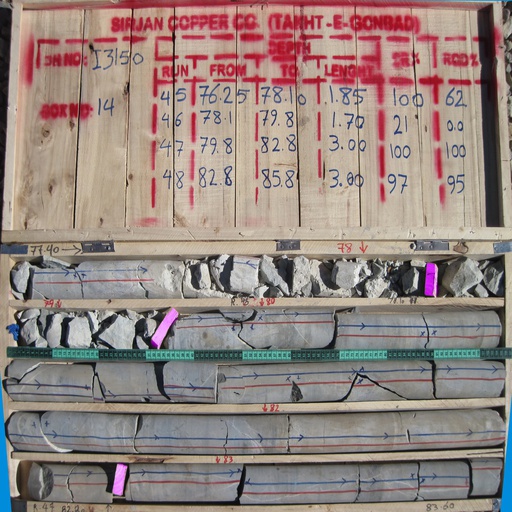 SIRJAN COPPER CO. (TAKHT-E-GONBAD)
BH NO: I3150
DEPTH
RUN FROM TO LENGHT CR% RQD%
BOX NO: 14
45 76.25 78.10 1.85 100 62
46 78.1 79.8 1.70 21 0.0
47 79.8 82.8 3.00 100 100
48 82.8 85.8 3.00 97 95
77.40 → 78 ↓
79
80
82
83
83.60